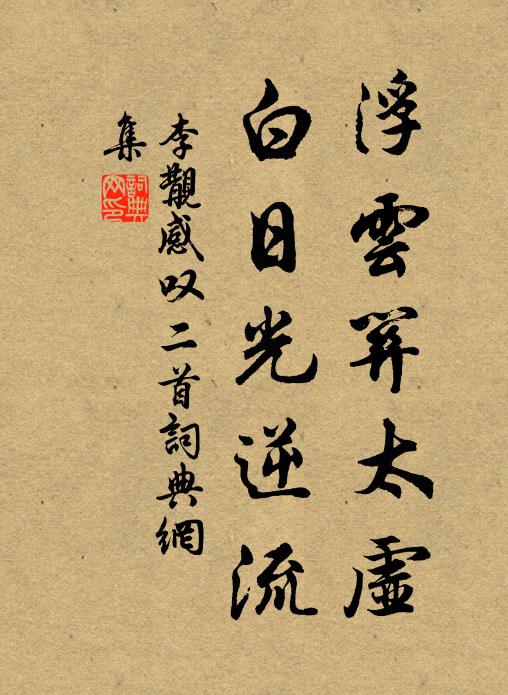 浮雲太虛
白日光逆流
李覯感叹二首詞典網
集
詞典網印